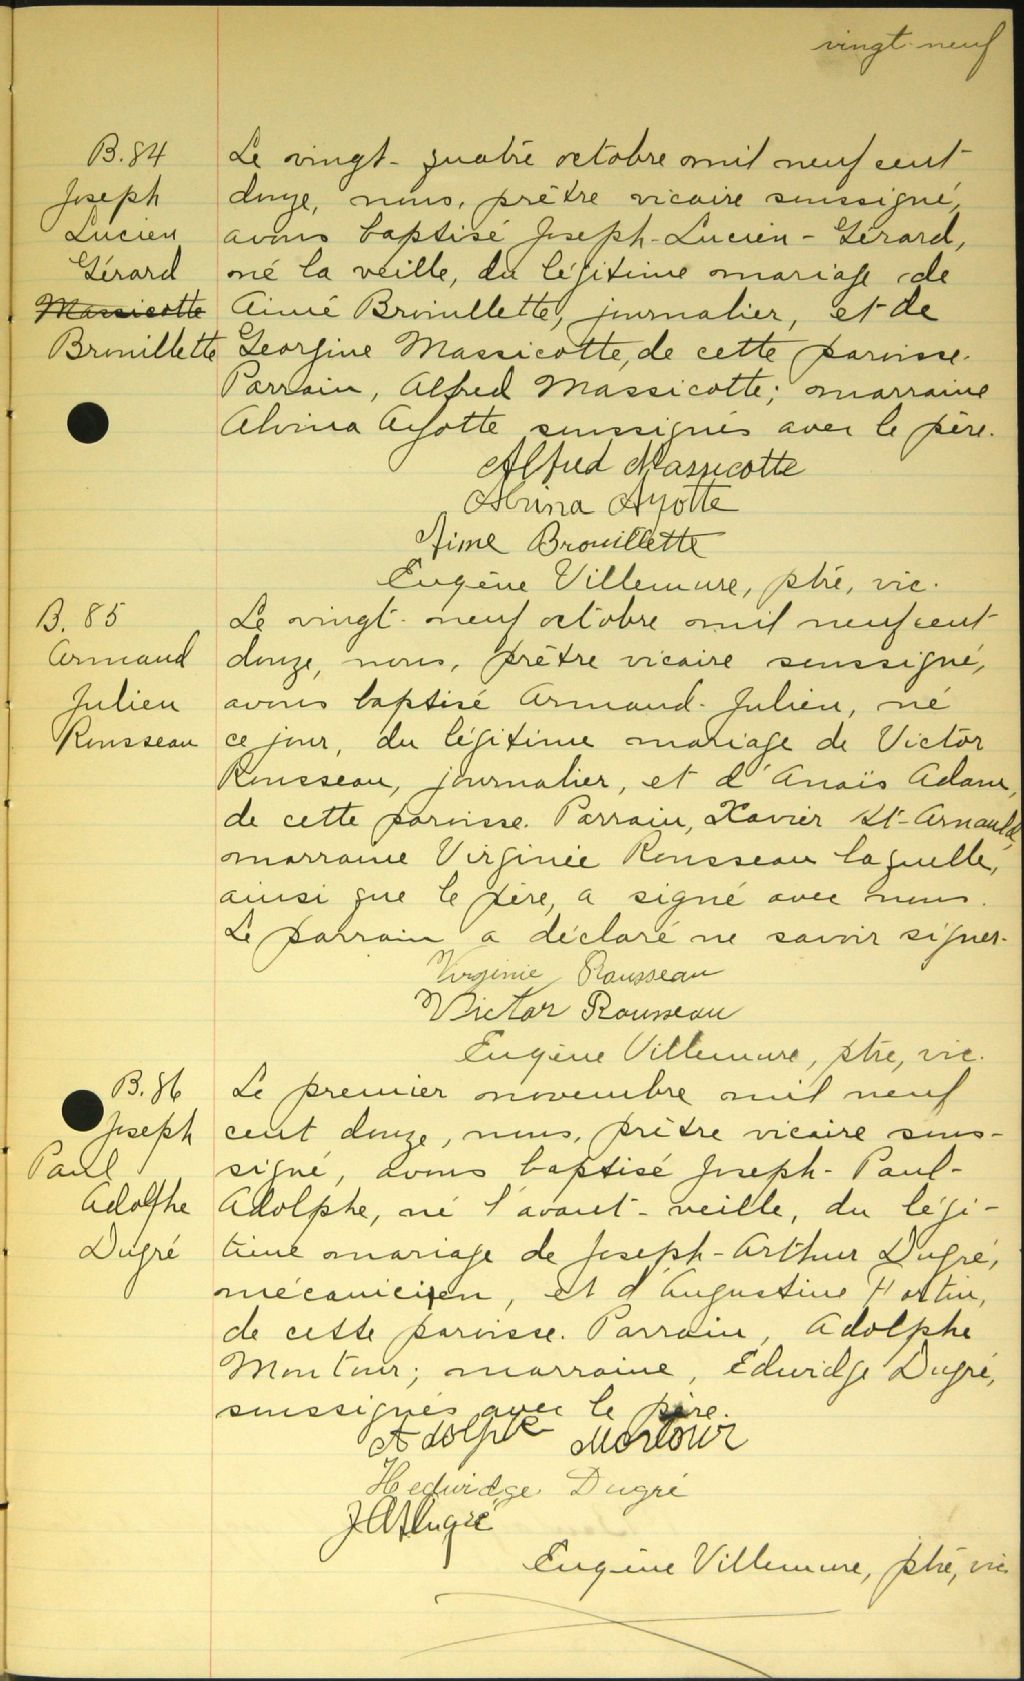 vingt-neuf
B. 84
Joseph
Lucien
Gérard
Massicotte
Brouillette
Le vingt-quatre octobre mil neuf cent
douze, nous, prêtre vicaire soussigné,
avons baptisé Joseph-Lucien-Gérard,
né la veille, du légitime mariage de
Aimé Brouillette, journalier, et de
Georgine Massicotte, de cette paroisse.
Parrain, Alfred Massicotte; marraine
Alvina Ayotte soussignés avec le père.
Alfred Massicotte
Alvina Ayotte
Aime Brouillette
Eugène Villemure, ptre, vic.
B. 85
Armand
Julien
Rousseau
Le vingt-neuf octobre mil neuf cent
douze, nous, prêtre vicaire soussigné,
avons baptisé Armand-Julien, né
ce jour, du légitime mariage de Victor
Rousseau, journalier, et d'Anaïs Adam,
de cette paroisse. Parrain, Xavier St-Arnauld,
marraine Virginie Rousseau laquelle,
ainsi que le père, a signé avec nous.
Le parrain a déclaré ne savoir signer.
Virginie Rousseau
Victor Rousseau
Eugène Villemure, ptre, vic.
B. 86
Joseph
Paul
Adolphe
Dugré
Le premier novembre mil neuf
cent douze, nous, prêtre vicaire sous-
signé, avons baptisé Joseph-Paul-
Adolphe, né l'avant-veille, du légi-
time mariage de Joseph-Arthur Dugré,
mécanicien, et d'Augustine Fortin,
de cette paroisse. Parrain, Adolphe
Montour; marraine, Edwidge Dugré,
soussignés avec le père.
Adolphe Montour
Hedwidge Dugré
J A Dugré
Eugène Villemure, ptre, vic